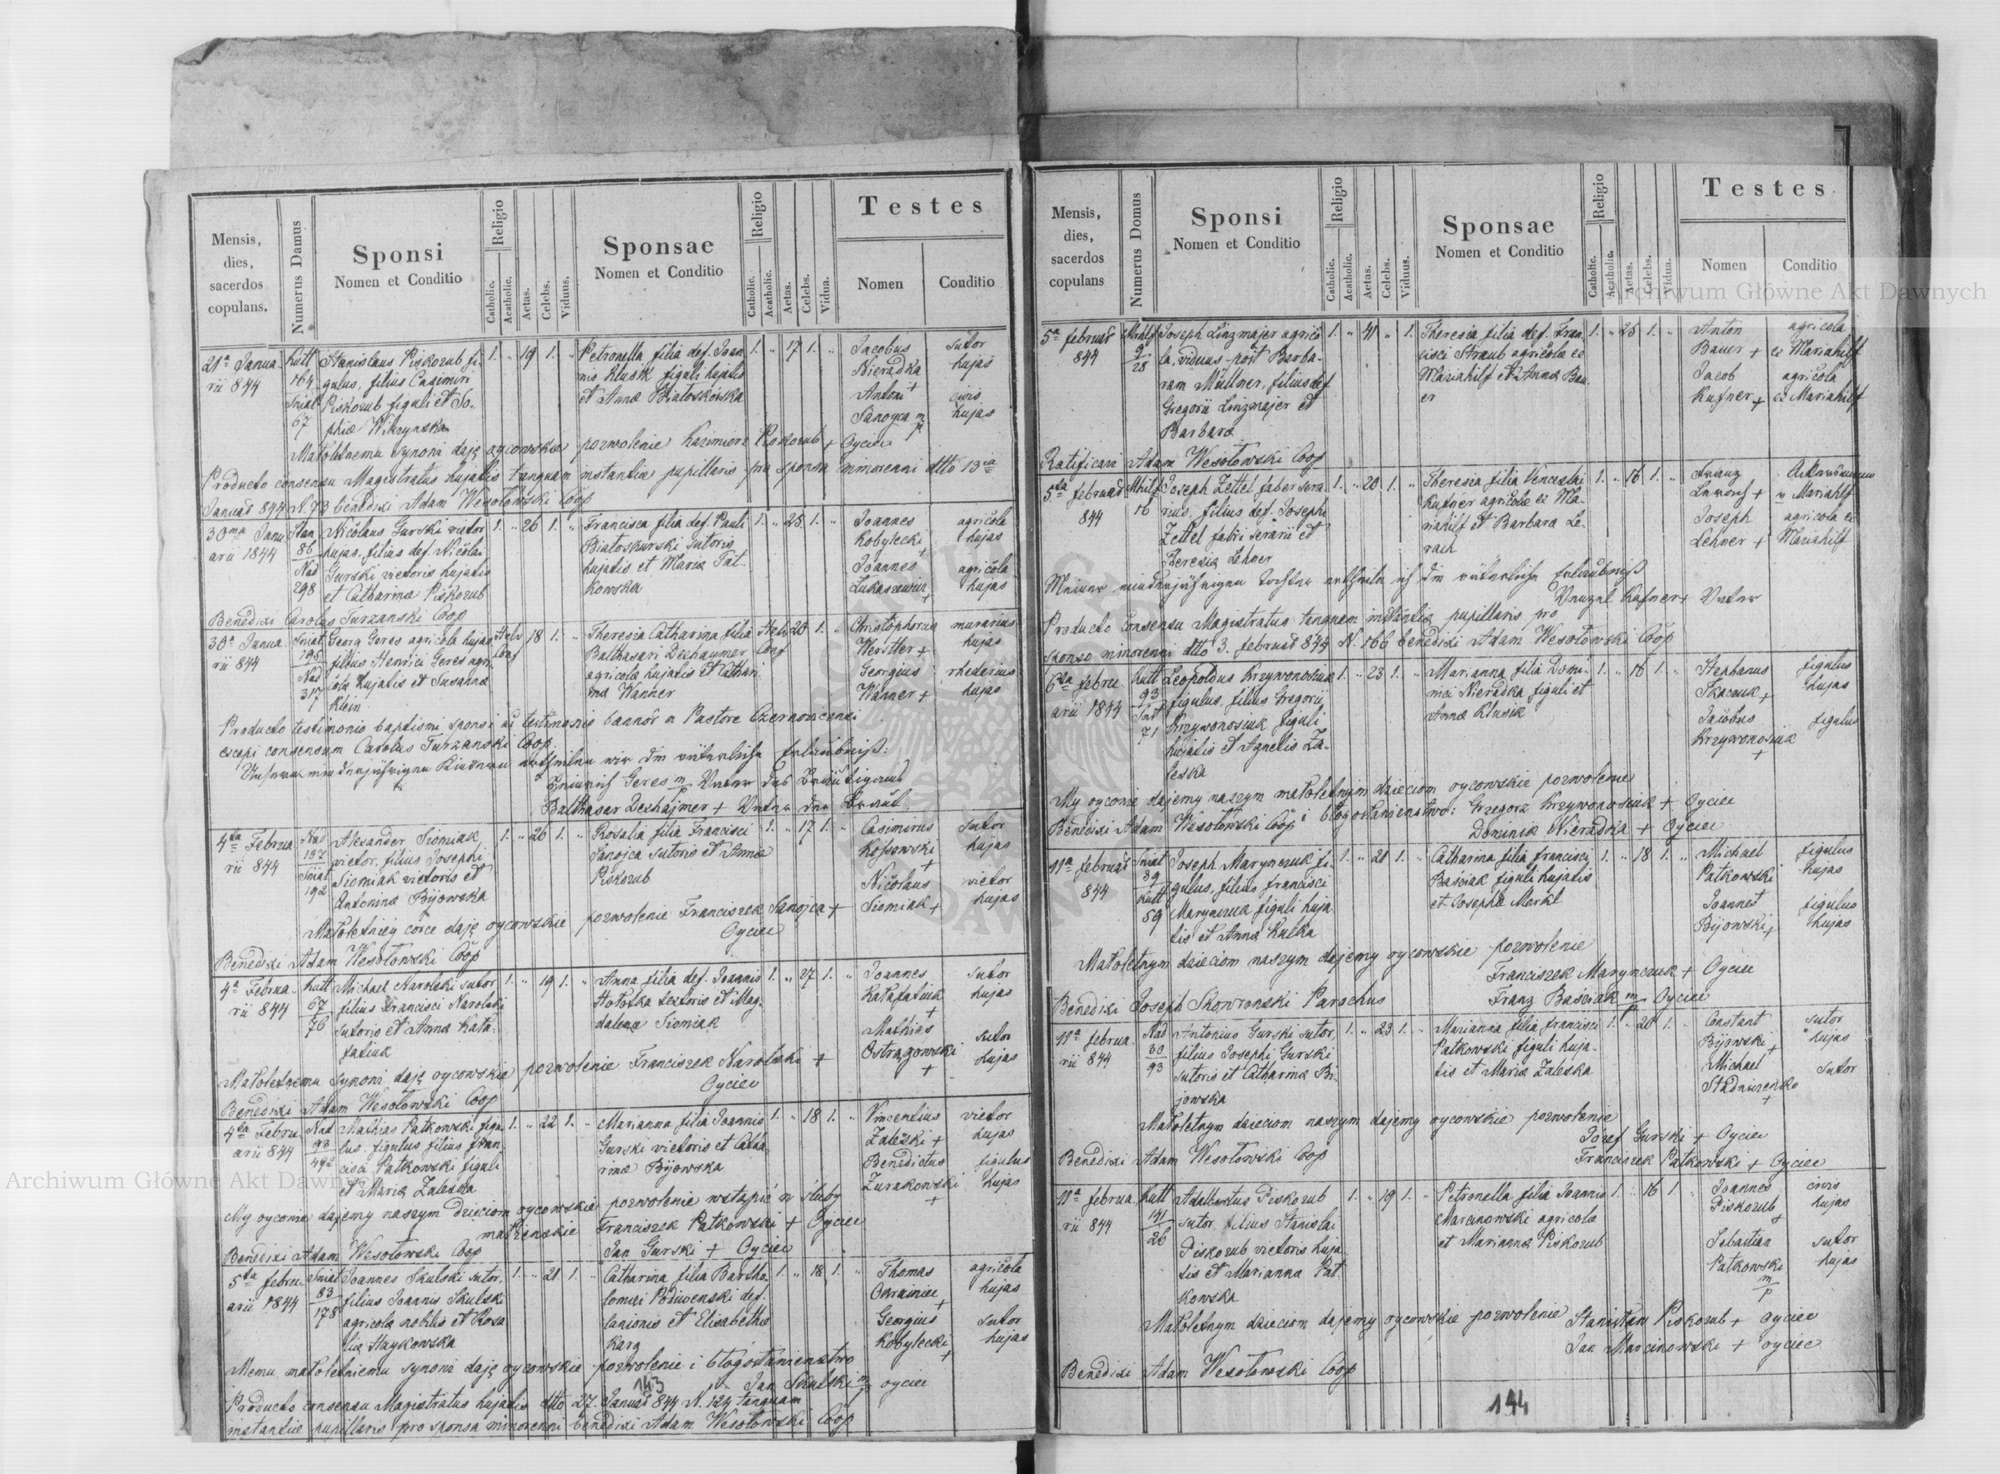 Mensis,
dies,
sacerdos
copulans.
Numerus Damus
Sponsi
Nomen et Conditio
Religio
Catholic.
Acatholic.
Aetas.
Celebs.
Viduus.
Sponsae
Nomen et Conditio
Religio
Catholic.
Acatholic.
Aetas.
Celebs.
Vidua.
Testes
Nomen
Conditio
21a Janua
rii 844
Kutt
164
Sniat
67
Stanislaus Piskozub fi-
gulus, filius Casimiri
Piskozub figuli et So-
phiæ
1. " 19 1. "
Petronella filia def. Joan
nis Klusik figuli hujatis
et Annæ Białoskórska
1. " 17 1. "
Jacobus
Nieradka
Antoni +
Sanojca
sutor
hujas
civis
hujas
Małoletnemu synowi daję oycowskie pozwolenie Kazimierz Piskozub + Oyciec
Producto consensu Magistratus hujatis tanquam instantiæ pupillaris pro sponsa minorenni dtto 13
Januar 844 N. 73 benedixi Adam Wesołowski Coop
30ma Janu
arii 1844
86
Nad
298
Nicolaus Gurski vietor
hujas, filius def. Nicolai
Gurski vietoris hujatis
et Catharinæ Piskozub
1. " 26 1. "
Francisca filia def. Pauli
Białoskurski sutoris
hujatis et Mariæ Pat-
kowska
1. " 25 1. "
Joannes
Kobylecki
+
Joannes
Łukasiewicz
+
agricola
hujas
agricola
hujas
Benedixi Carolus Turzanski Coop
30a Janua
rii 844
Sniat
195
Nad
317
Georg Geres agricola hujas
filius Henrici Geres agri-
colæ hujatis et Susanna
Klein
Helv
Conf
18 1. "
Theresia Catharina filia
Balthasari Deshaymer
agricolæ hujatis et Cathari
næ Wanner
Helv
Conf
20 1. "
Christophorus
Weritter +
Georgius
Wanner +
murarius
hujas
rhedarius
hujas
Producto testimonio baptismi sponsi ac testimonio bannor a Pastore Czernovicensi
excepi consensum Carolus Turzanski Coop
Unseren minderjährigen Kindern ertheilen wir die väterliche Erlaubniß:
Heinrich Geres Vater des Bräutigams
Balthasar Deshajmer + Vater der Braut
4ta Februa
rii 844
Nad
187
Sniat
192
Alexander Siomiak
vietor, filius Josephi
Siomiak vietoris et
Antoninæ Bijowska
1. " 26 1. "
Rosalia filia Francisci
Sanojca sutoris et Annæ
Piskozub
1. " 17 1. "
Casimirus
Kossowski
+
Nicolaus
Siomiak +
sutor
hujas
vietor
hujas
Małoletniey corce daję oycowskie pozwolenie Franciszek Sanojca +
Oyciec
Benedixi Adam Wesołowski Coop
4a Februa
rii 844
Kutt
67
76
Michael Narolski sutor
filius Francisci Narolski
sutoris et Annæ Kata-
faliuk
1. " 19 1. "
Anna filia def. Joannis
Hołotka textoris et Mag-
dalenæ Siomiak
1. " 27 1. "
Joannes
Katafaliuk
+
Mathias
Ostrągowski
+
sutor
hujas
sutor
hujas
Małoletnemu synowi daję oycowskie pozwolenie Franciszek Narolski +
Oyciec
Benedixi Adam Wesołowski Coop
4ta Febru
arii 844
Nad
93
492
Mathias Patkowski figu-
lus, figulus filius Fran-
cisci Patkowski figuli
et Mariæ Zaleska
1. " 22 1. "
Marianna filia Joannis
Gurski vietoris et Catha-
rinæ Bijowska
1. " 18 1. "
Vincentius
Zaleski +
Benedictus
Żurakowski
+
vietor
hujas
figulus
hujas
My oycowie dajemy naszym dzieciom oycowskie pozwolenie wstąpić w śluby
małżenskie Franciszek Patkowski + Oyciec
Jan Gurski + Oyciec
Benedixi Adam Wesołowski Coop
5ta Febru
arii 1844
Sniat
83
178
Joannes Skulski sutor,
filius Joannis Skulski
agricolæ nobilis et Rosa
liæ Haykowska
1. " 21 1. "
Catharina filia Bartho
lomæi def.
lanionis et Elisabethæ
Karg
1. " 18 1. "
Thomas
Ukrainiec
+
Georgius
Kobylecki
+
agricola
hujas
sutor
hujas
Memu małoletniemu synowi daję oycowskie pozwolenie i błogosławienstwo
Jan Skulski oyciec
143
Producto consensu Magistratus hujatis dtto 27 Januar 844 N. 124 tanquam
instantiæ pupillaris pro sponsa minorenni benedixi Adam Wesołowski Coop
Mensis,
dies,
sacerdos
copulans
Numerus Domus
Sponsi
Nomen et Conditio
Religio
Catholic.
Acatholic.
Aetas.
Celebs.
Viduus.
Sponsae
Nomen et Conditio
Religio
Catholic.
Acatholic.
Aetas.
Celebs.
Vidua.
Testes
Nomen
Conditio
5a Februar
844
Mrhlf
9
28
Joseph Linzmajer agrico
la, viduus post Barba-
ram Müllner, filius def
Gregorii Linzmajer et
Barbara
1. " 41 " 1.
Theresia filia def. Fran
cisci Straub agricolæ ex
Mariahilf et Annæ Bau
er
1. " 25 1. "
Anton
Bauer +
Jacob
Kufner +
agricola
ex Mariahilf
agricola
ex Mariahilf
Ratificavi Adam Wesołowski Coop
5ta Februar
844
Mhilf
16
Joseph Zettel faber sera
rius, filius def. Josephi
Zettel fabri serarii et
Theresiæ Lehner
1. " 20 1. "
Theresia filia Venceslai
Kufner agricolæ ex Ma-
riahilf et Barbara Le-
rach
1. " 16 1. "
Franz
Joseph
Lehner +
Mariahlf
agricola ex
Mariahilf
Meiner minderjährigen Tochter ertheile ich die väterliche Erlaubniß
Wenzel Kufner + Vater
Producto consensu Magistratus tanquam instantiæ pupillaris pro
sponso minorenni dtto 3. Februar 844 N. 166 benedixi Adam Wesołowski Coop
6ta Febru
arii 1844
Kutt
93
Sniat
71
Leopoldus Krzywonosiuk
figulus, filius Gregorii
Krzywonosiuk figuli
hujatis et Agnetis Za-
leska
1. " 23 1. "
Marianna filia Domi-
nici Nieradka figuli et
Annæ Klusik
1. " 16 1. "
Stephanus
Tkaczuk +
Jacobus
Krzywonosiuk
+
figulus
hujas
figulus
My oycowie dajemy naszym małoletnym dzieciom oycowskie pozwolenie
i błogosławienstwo: Grzegorz Krzywonosiuk + Oyciec
Benedixi Adam Wesołowski Coop
Dominik Nieradka + Oyciec
11a Februar
844
Sniat
89
Kutt
59
Joseph Marynczuk fi-
gulus, filius Francisci
Marynczuk figuli huja
tis et Annæ Kulka
1. " 21 1. "
Catharina filia Francisci
Baściak figuli hujatis
et Josephæ Merkt
1. " 18 1. "
Michael
Patkowski
+
Joannes
Bijowski +
figulus
hujas
figulus
hujas
Małoletnym dzieciom naszym dajemy oycowskie pozwolenie
Franciszek Marynczuk + Oyciec
Franz Baściak Oyciec
Benedixi Joseph Skowronski Parochus
11a Februa
rii 844
Nad
30
93
Antonius Gurski sutor,
filius Josephi Gurski
sutoris et Catharinæ Bi-
jowska
1. " 23 1. "
Marianna filia Francisci
Patkowski figuli huja-
tis et Mariæ Zaleska
1. " 20 1. "
Constant
Bijowski
+
Michael
Stadniczenko
+
sutor
hujas
sutor
Małoletnym dzieciom naszym dajemy oycowskie pozwolenie
Józef Gurski + Oyciec
Franciszek Patkowski + Oyciec
Benedixi Adam Wesołowski Coop
11a Februa
rii 844
Kutt
141
26
Adalbertus Piskozub
sutor, filius Stanislai
Piskozub vietoris huja
tis et Marianna Pat
kowska
1. " 19 1. "
Petronella filia Joannis
Marcinowski agricolæ
et Marianna Piskozub
1. " 16 1. "
Joannes
Piskozub
+
Sebastian
Patkowski
civis
hujas
sutor
hujas
Małoletnym dzieciom dajemy oycowskie pozwolenie Stanisław Piskozub + oyciec
Jan Marcinowski + oyciec
Benedixi Adam Wesołowski Coop
144
Archiwum Główne Akt Dawnych
Archiwum Główne Akt Dawnych